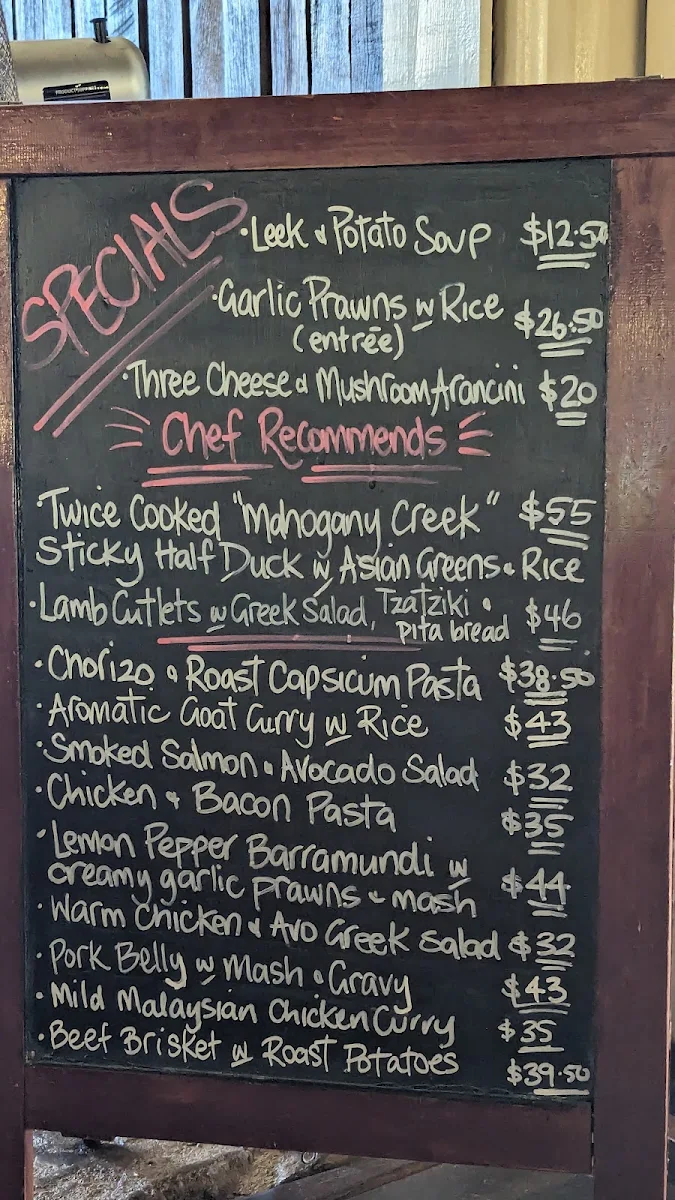 SPECIALS
·Leek & Potato Soup $12.50
·Garlic Prawns w Rice $26.50
(entrée)
·Three Cheese & Mushroom Arancini $20
Chef Recommends
·Twice Cooked "Mahogany Creek" $55
Sticky Half Duck w Asian Greens & Rice
·Lamb Cutlets w Greek Salad, Tzatziki & $46
pita bread
·Chorizo & Roast Capsicum Pasta $38.50
·Aromatic Goat Curry w Rice $43
·Smoked Salmon & Avocado Salad $32
·Chicken & Bacon Pasta $35
·Lemon Pepper Barramundi w
creamy garlic prawns & mash $44
·Warm Chicken & Avo Greek Salad $32
·Pork Belly w Mash & Gravy $43
·Mild Malaysian Chicken Curry $35
·Beef Brisket w Roast Potatoes $39.50